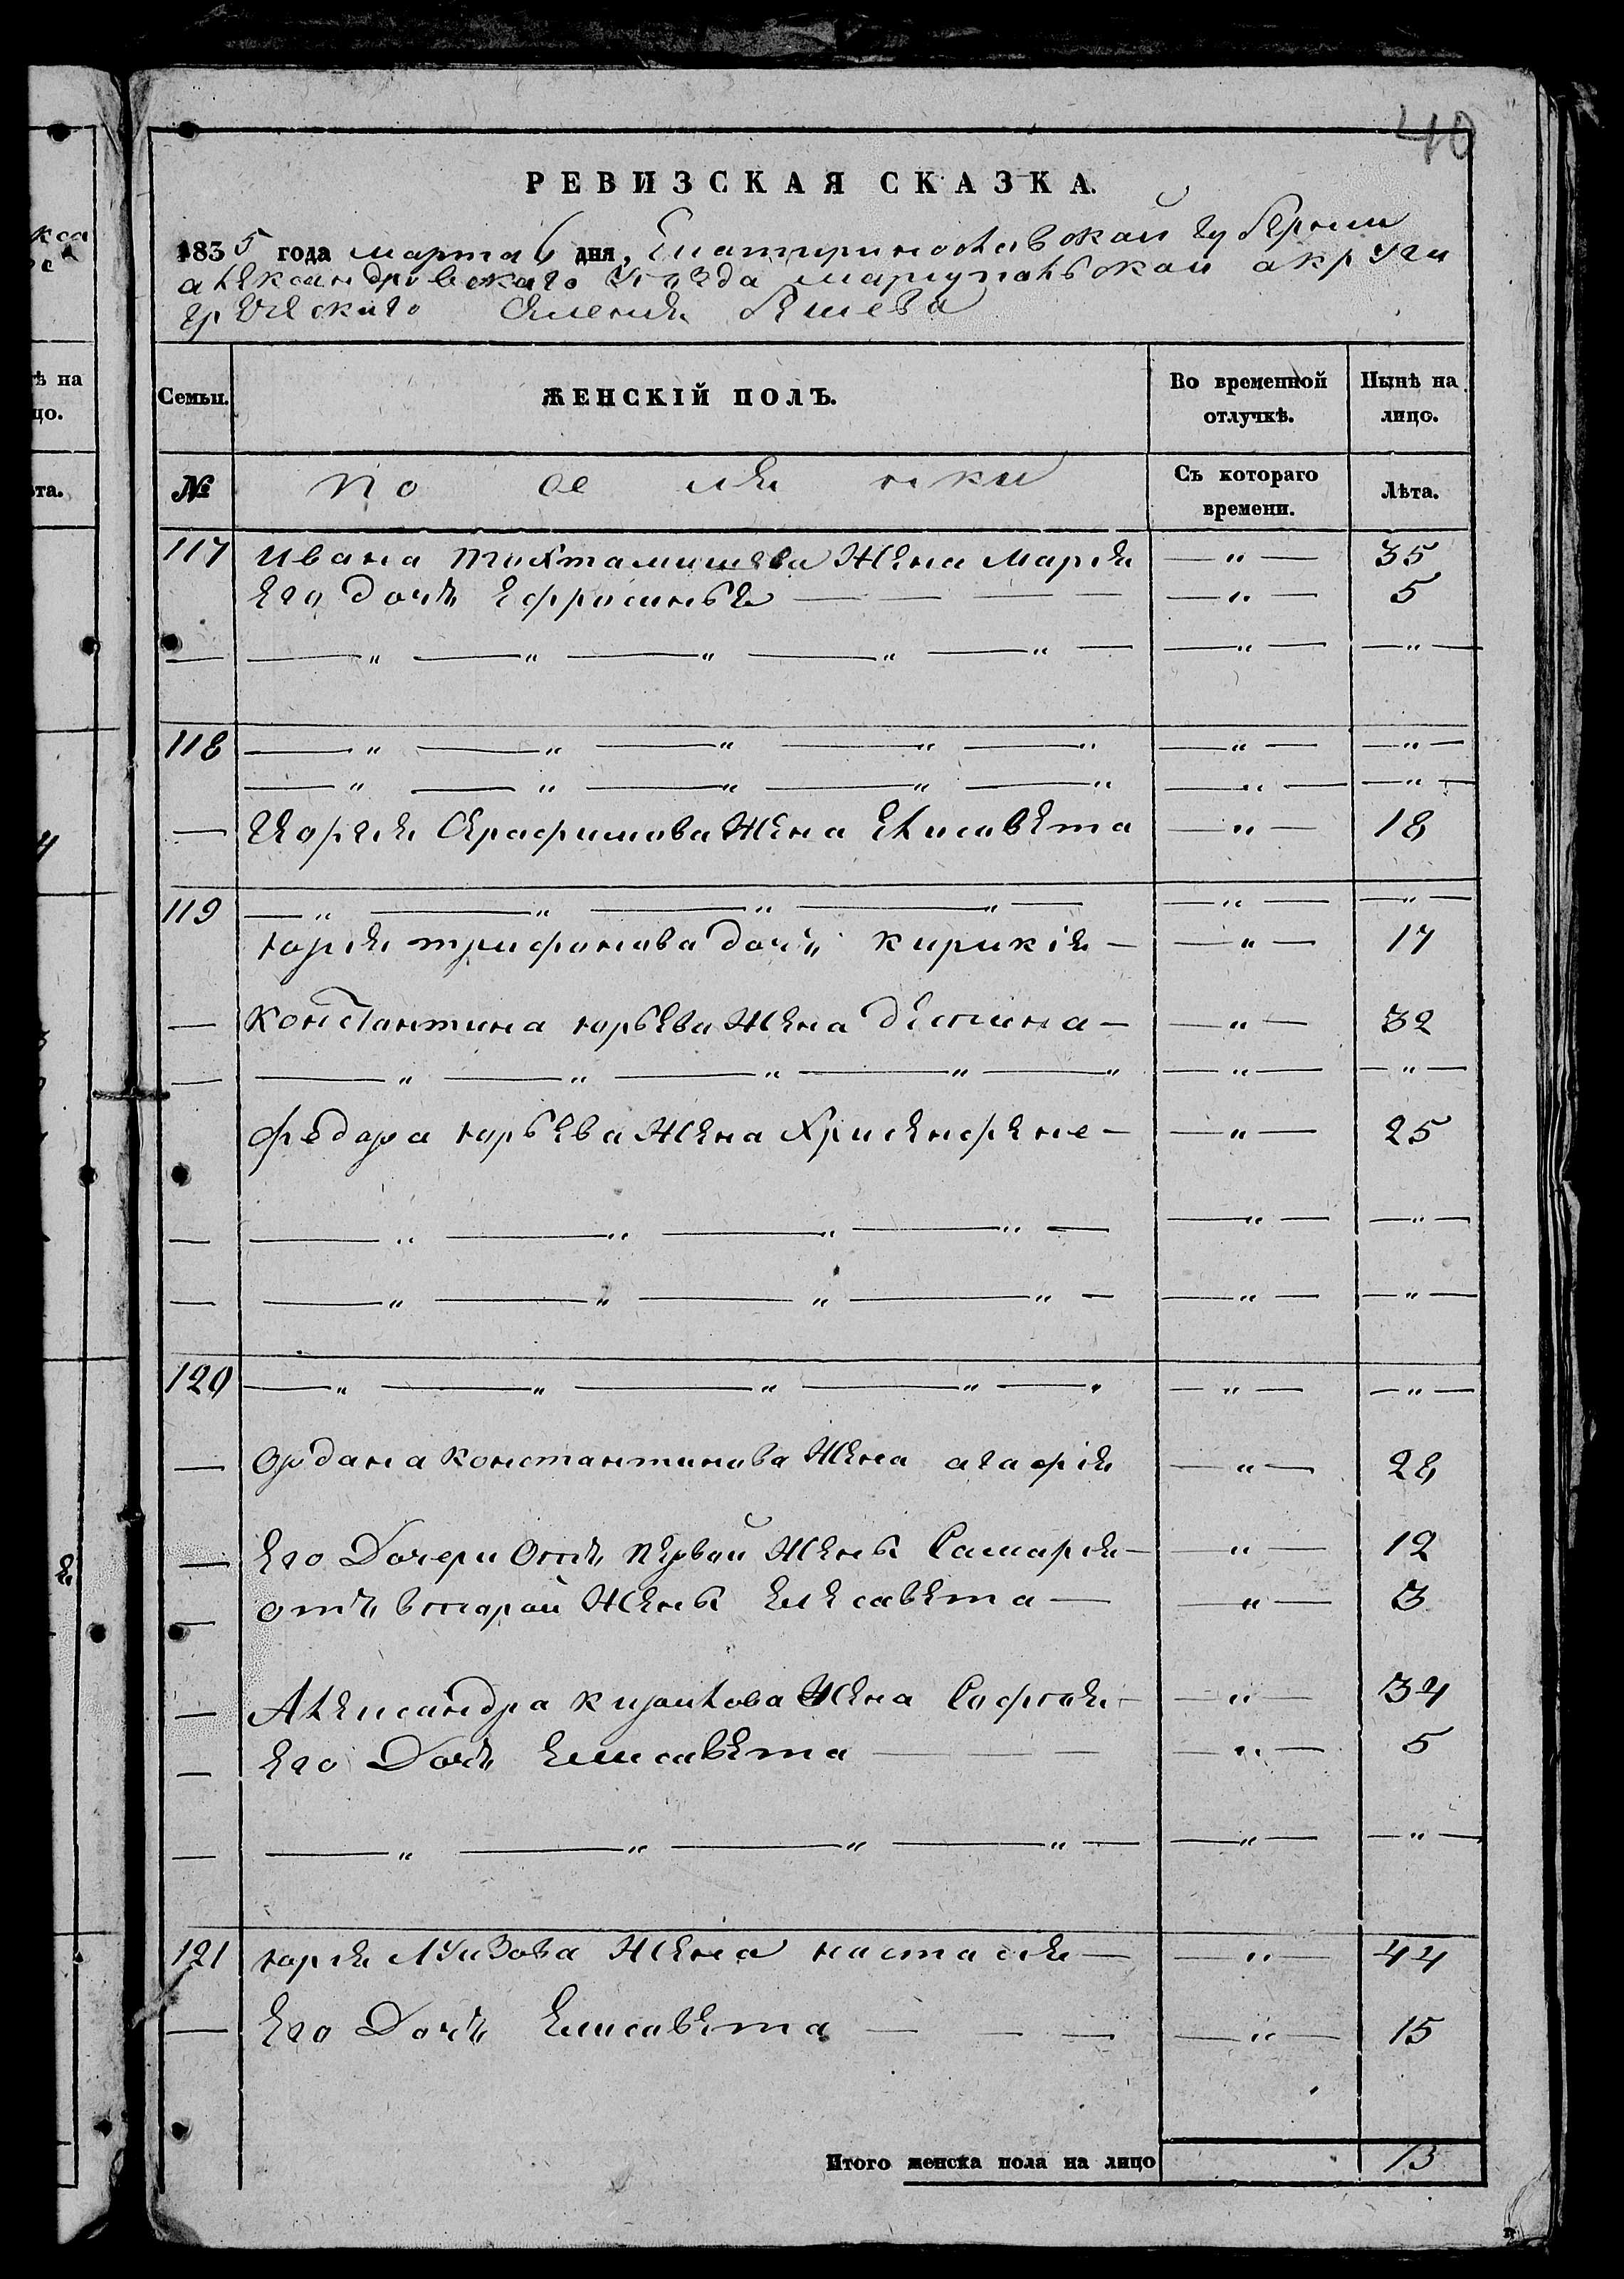 40
РЕВИЗСКАЯ СКАЗКА.
1835 года марта 6 дня, Екатиринославской губернии
александровскаго уезда мариупольской акруги
греческаго селения Бешева
Семьи. ЖЕНСКІЙ ПОЛЪ. Во временной отлучкѣ. Нынѣ на лицо.
№ по се ля нки Съ котораго времени. Лѣта.
117 Ивана тохтамишева жена Мария — " — 35
Его дочь Ефросинья — — — — — " — 5
— — " — " — " — " — " — — " — — " —
118 — " — " — " — " — " — " — — " —
— " — " — " — " — " — " — — " —
— Георгия Серафимова жена Елисавета — " — 18
119 — " — " — " — " — — " — — " —
юрия трифонова дочь кирикія — — " — 17
— Константина юрьева жена Деспина — — " — 32
— — " — " — " — " — " — " — — " —
федора юрьева жена Хрисенфене — — " — 25
— — " — " — " — " — — " — — " —
— — " — " — " — " — — " — — " —
120 — " — " — " — " — " — " — — " —
— Ордана Константинова жена агафія — " — 28
— Его Дочери Отъ первой жены Самария — — " — 12
— отъ второй жены Елесавета — — " — 3
— Александра кирилова жена Софтия — — " — 34
— Его Дочь Елисавета — — — — " — 5
— — " — " — " — " — — " — — " —
121 юрия жена настасия — — " — 44
— Его Дочь Елисавета — — — — " — 15
Итого женска пола на лицо 13